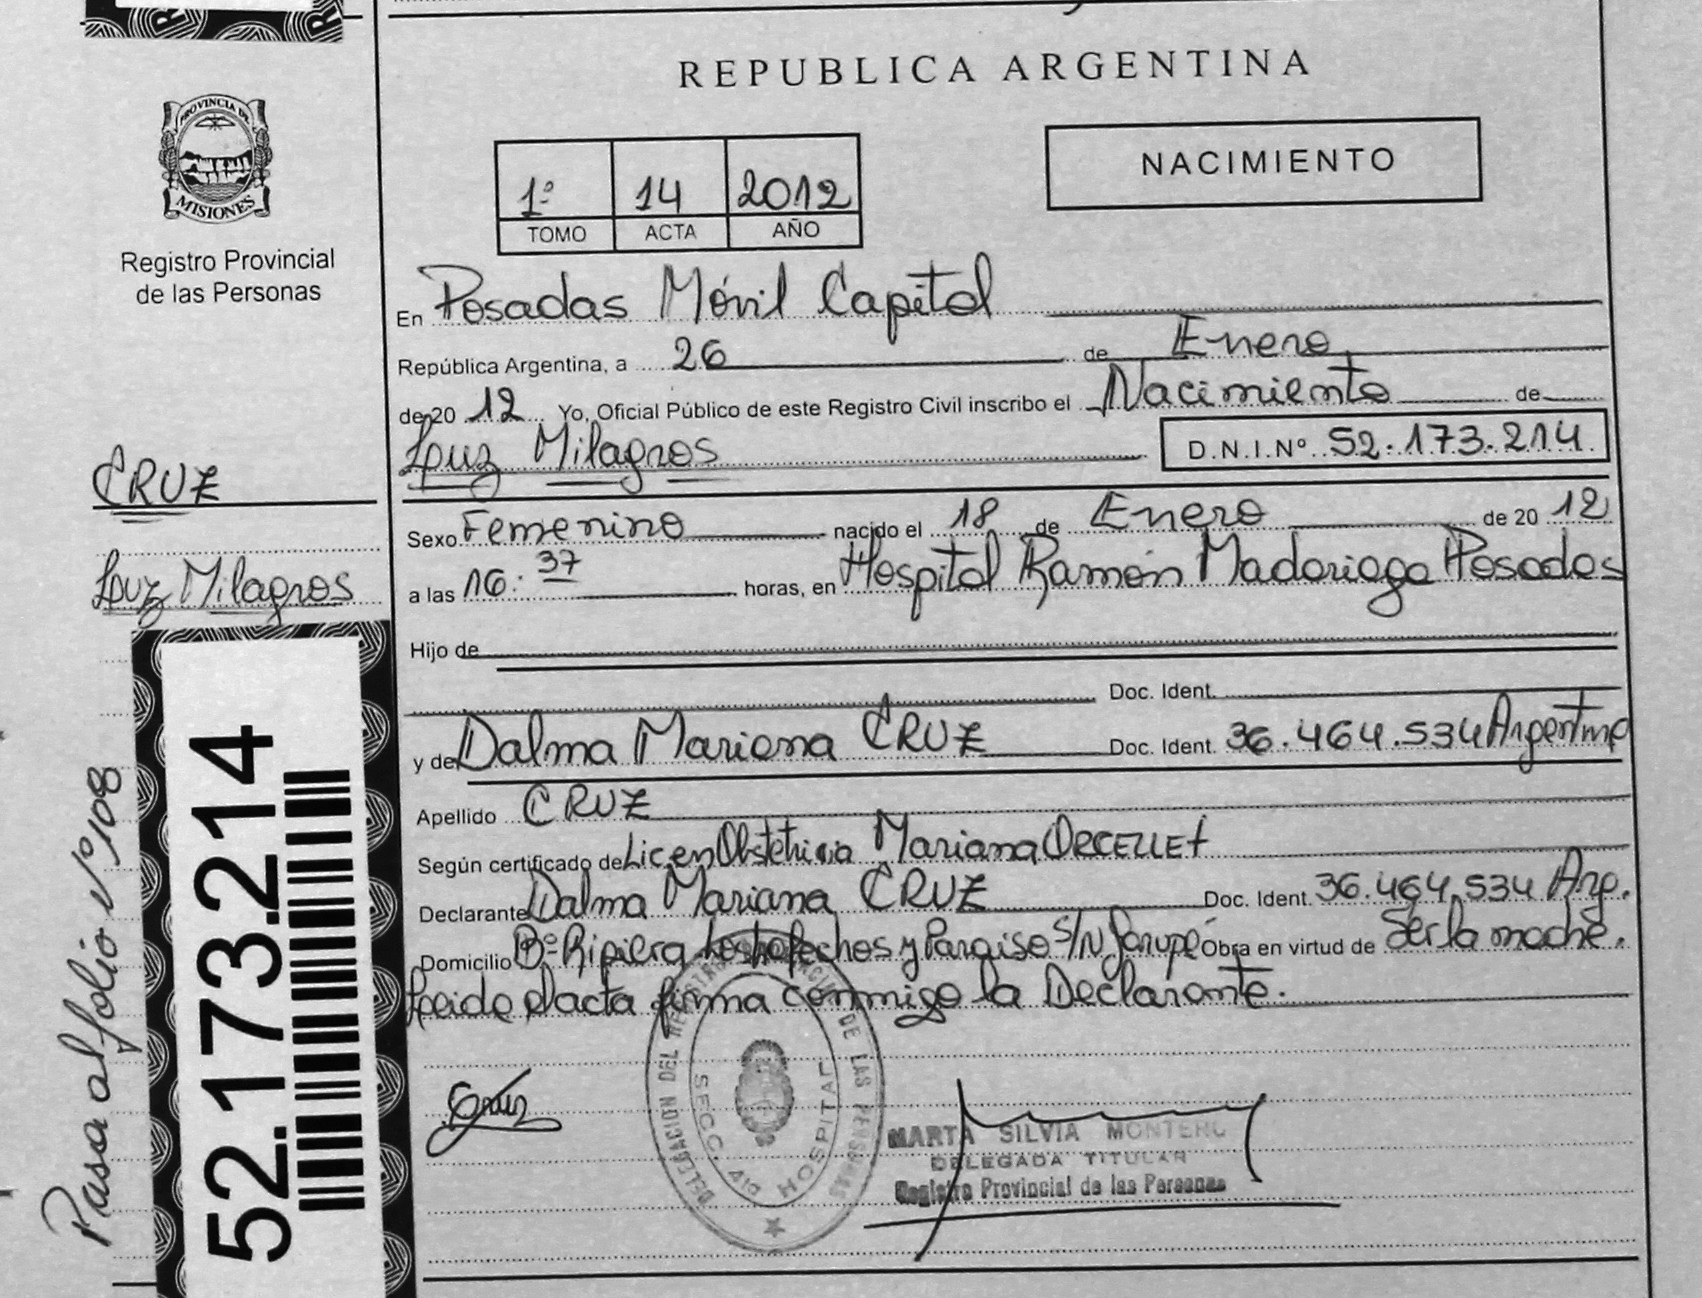 REPUBLICA ARGENTINA
PROVINCIA DE
MISIONES
Registro Provincial
de las Personas
NACIMIENTO
1º 14 2012
TOMO ACTA AÑO
En Posadas Móvil Capital
República Argentina, a 26 de Enero
de 20 12 Yo, Oficial Público de este Registro Civil inscribo el Nacimiento de
Luz Milagros D.N.I.Nº 52.173.214
CRUZ
Luz Milagros
Sexo Femenino nacido el 18 de Enero de 20 12
a las 16:37 horas, en Hospital Ramón Madariaga Posadas
Hijo de
Doc. Ident.
y de Dalma Mariana CRUZ Doc. Ident. 36.464.534 Argentina
Apellido CRUZ
Según certificado de Lic. en Obstetricia Mariana ORCELLET
Declarante Dalma Mariana CRUZ Doc. Ident. 36.464.534 Arg.
Domicilio Bº Ripiera y Paraiso S/N Garupé Obra en virtud de Ser la madre.
Leida el acta firma conmigo la Declarante.
52.173.214
Pasa al folio Nº 108
Cruz
DELEGACION DEL REGISTRO PROVINCIAL DE LAS PERSONAS
SECC. HOSPITAL
MARTA SILVIA MONTERO
DELEGADA TITULAR
Registro Provincial de las Personas